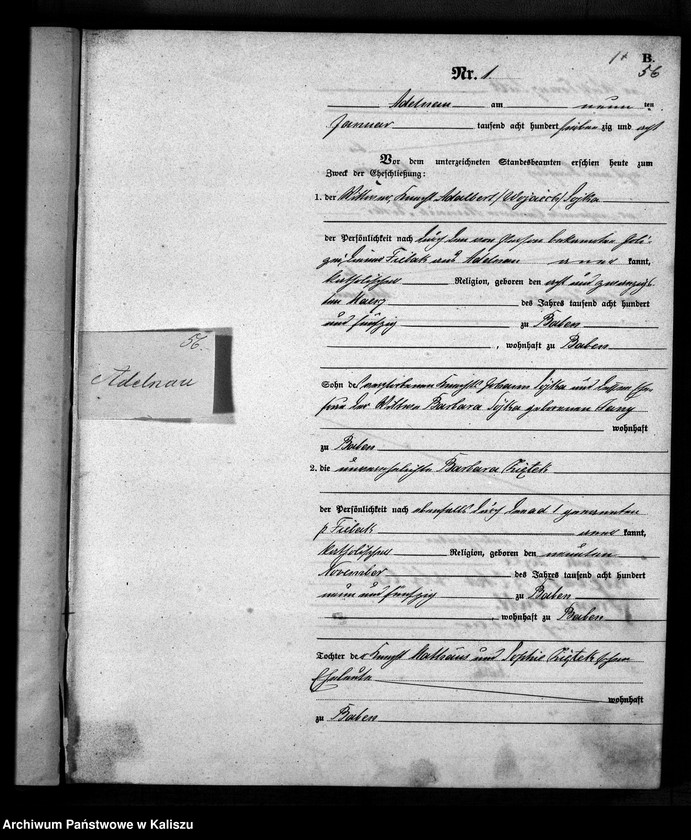 B.
56
Nr. 1
Adelnau am neun ten
Januar tausend acht hundert sieben zig und acht
Vor dem unterzeichneten Standesbeamten erschien heute zum
Zweck der Eheschließung:
1. der Wittwer, Knecht Adalbert /Wojciech/ Sojka
der Persönlichkeit nach durch den von Person bekannten
Fiebak aus Adelnau kannt,
katholischer Religion, geboren den acht und zwanzigs
ten Maerz des Jahres tausend acht hundert
und fünfzig zu Baben
, wohnhaft zu Baben
56.
Adelnau
Sohn des verstorbenen Knechts Johann Sojka und dessen Ehe
frau der Wittwe Barbara Sojka geborenen
wohnhaft
zu Baben
2. die unverehelichte Barbara Ziętek
der Persönlichkeit nach ebenfalls durch den ad 1 genannten
p Fiebak aner kannt,
katholischer Religion, geboren den neunten
November des Jahres tausend acht hundert
neun und fünfzig zu Baben
, wohnhaft zu Baben
Tochter der Knecht Mathäus und Sophie Ziętek schen
Eheleute
wohnhaft
zu Baben
Archiwum Państwowe w Kaliszu